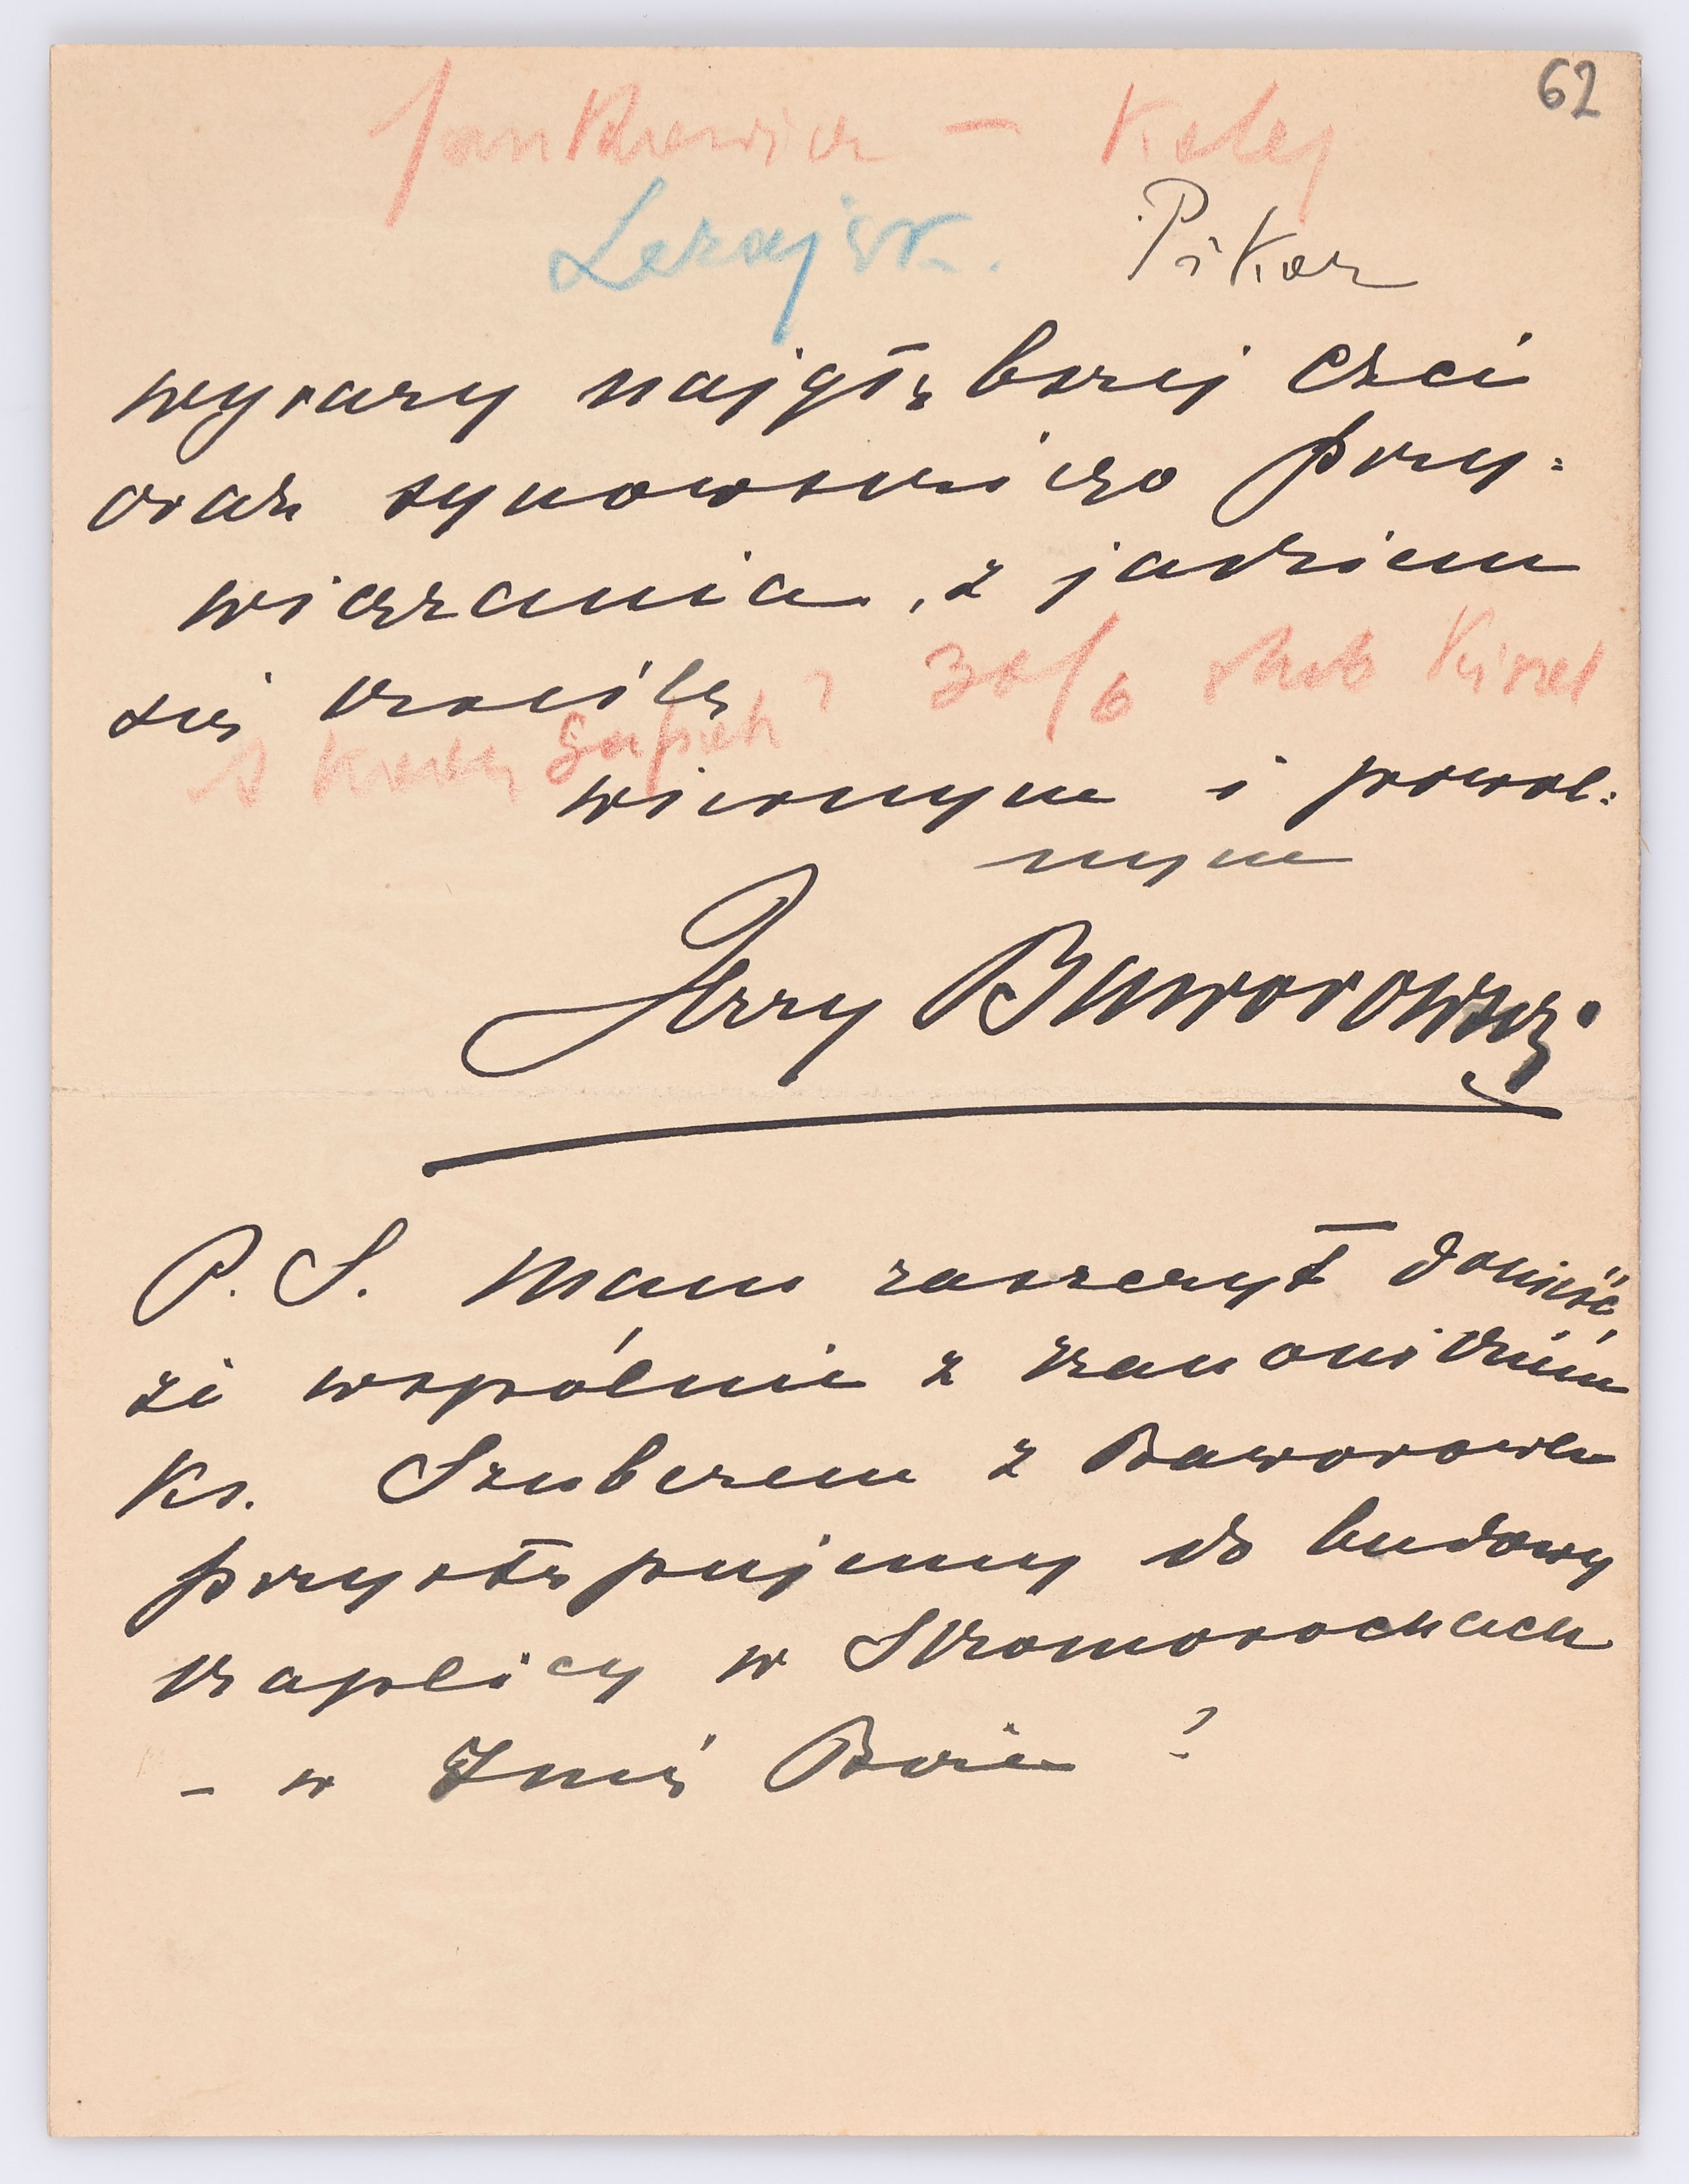 62
Jankiewicz – Kolej
Leżajsk.
Pikor
wyrazy najgłębszej czci
oraz synowskiego przy=
wiązania, z jakiem
się kreślę
30/6 ślub Kisiel
wiernym i powol=
nym
Jerzy Baworowski
P. S. Mam zaszczyt donieść,
że wspólnie z kanonikiem
Ks. Szuberem z Baworowa
przystępujemy do budowy
kaplicy w Skomorochach
– w Imię Boże!